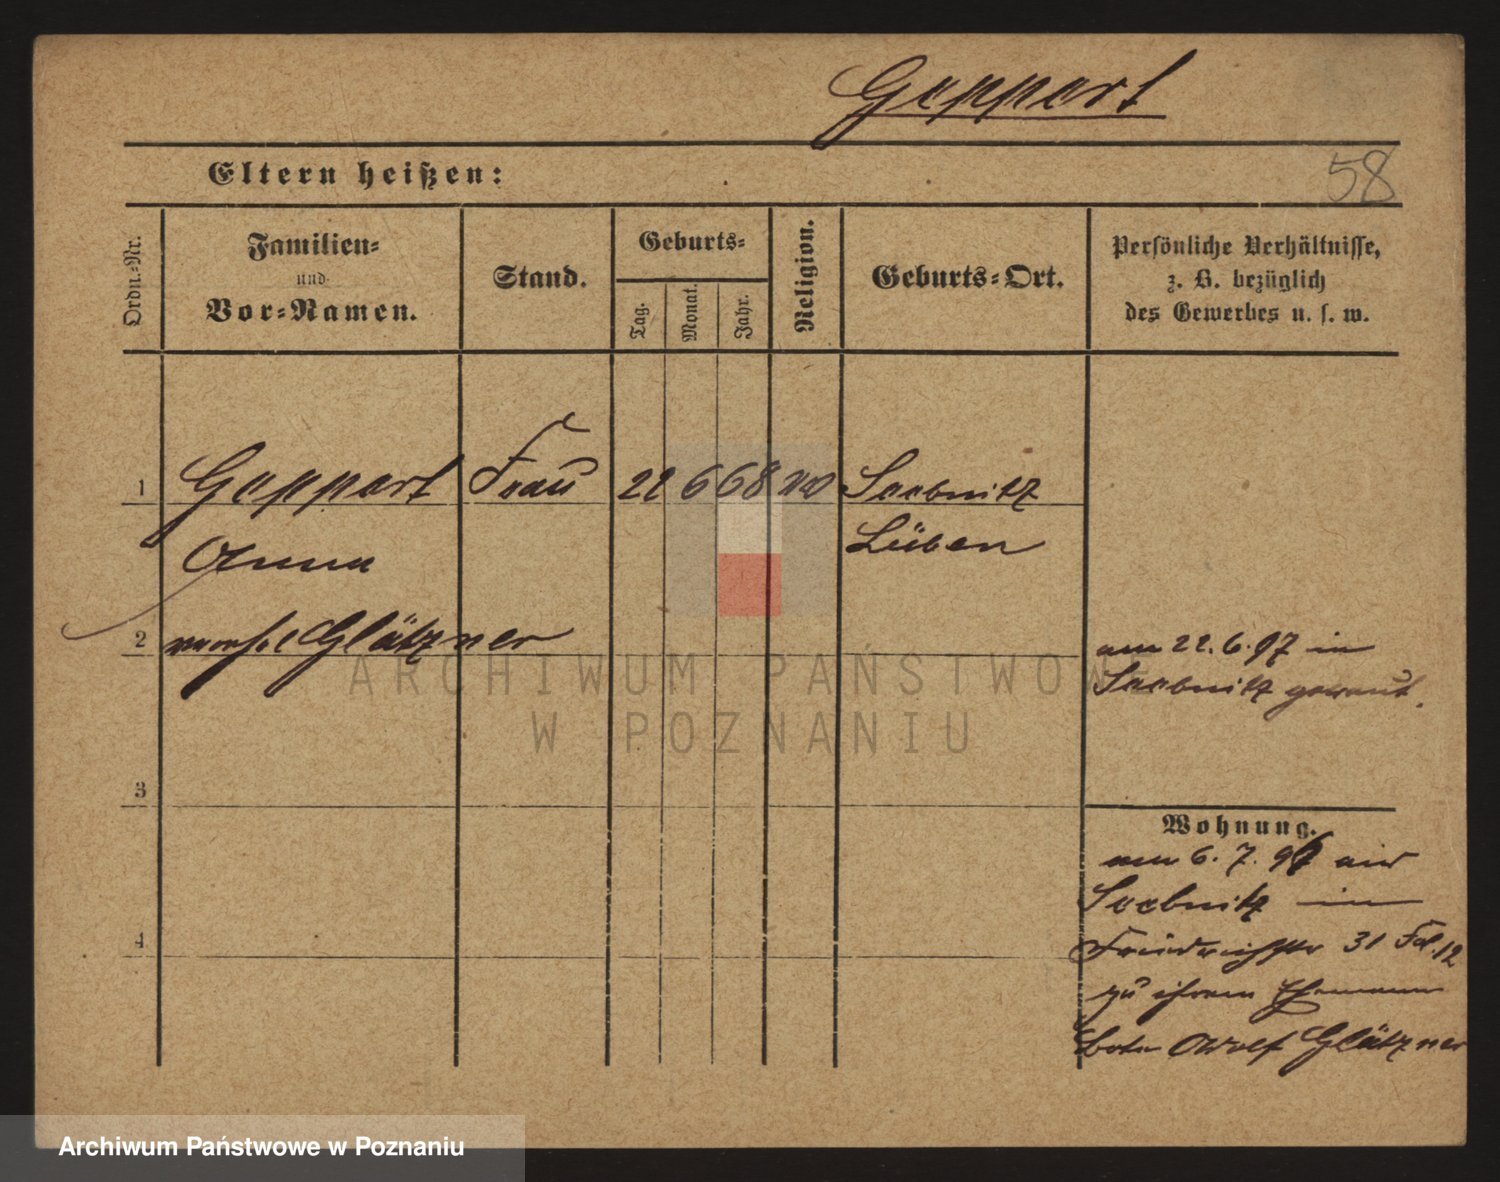 Geppert
Eltern heißen:
58
Ordn.-Nr.
Familien-
und
Vor-Namen.
Stand.
Geburts-
Tag.
Monat.
Jahr.
Religion.
Geburts-Ort.
Persönliche Verhältnisse,
z. B. bezüglich
des Gewerbes u. s. w.
1 Geppert Frau 22 6 68 Seebnitz
Anna Lüben
2 Glätzner
am 22. 6. 97 in
Seebnitz getraut.
3
Wohnung.
am 6. 7. 97 aus
Seebnitz in
4
Friedrichstr 31 Fol. 12
zu ihrem Ehemann
Glätzner
ARCHIWUM PAŃSTWOWE
W POZNANIU
Archiwum Państwowe w Poznaniu